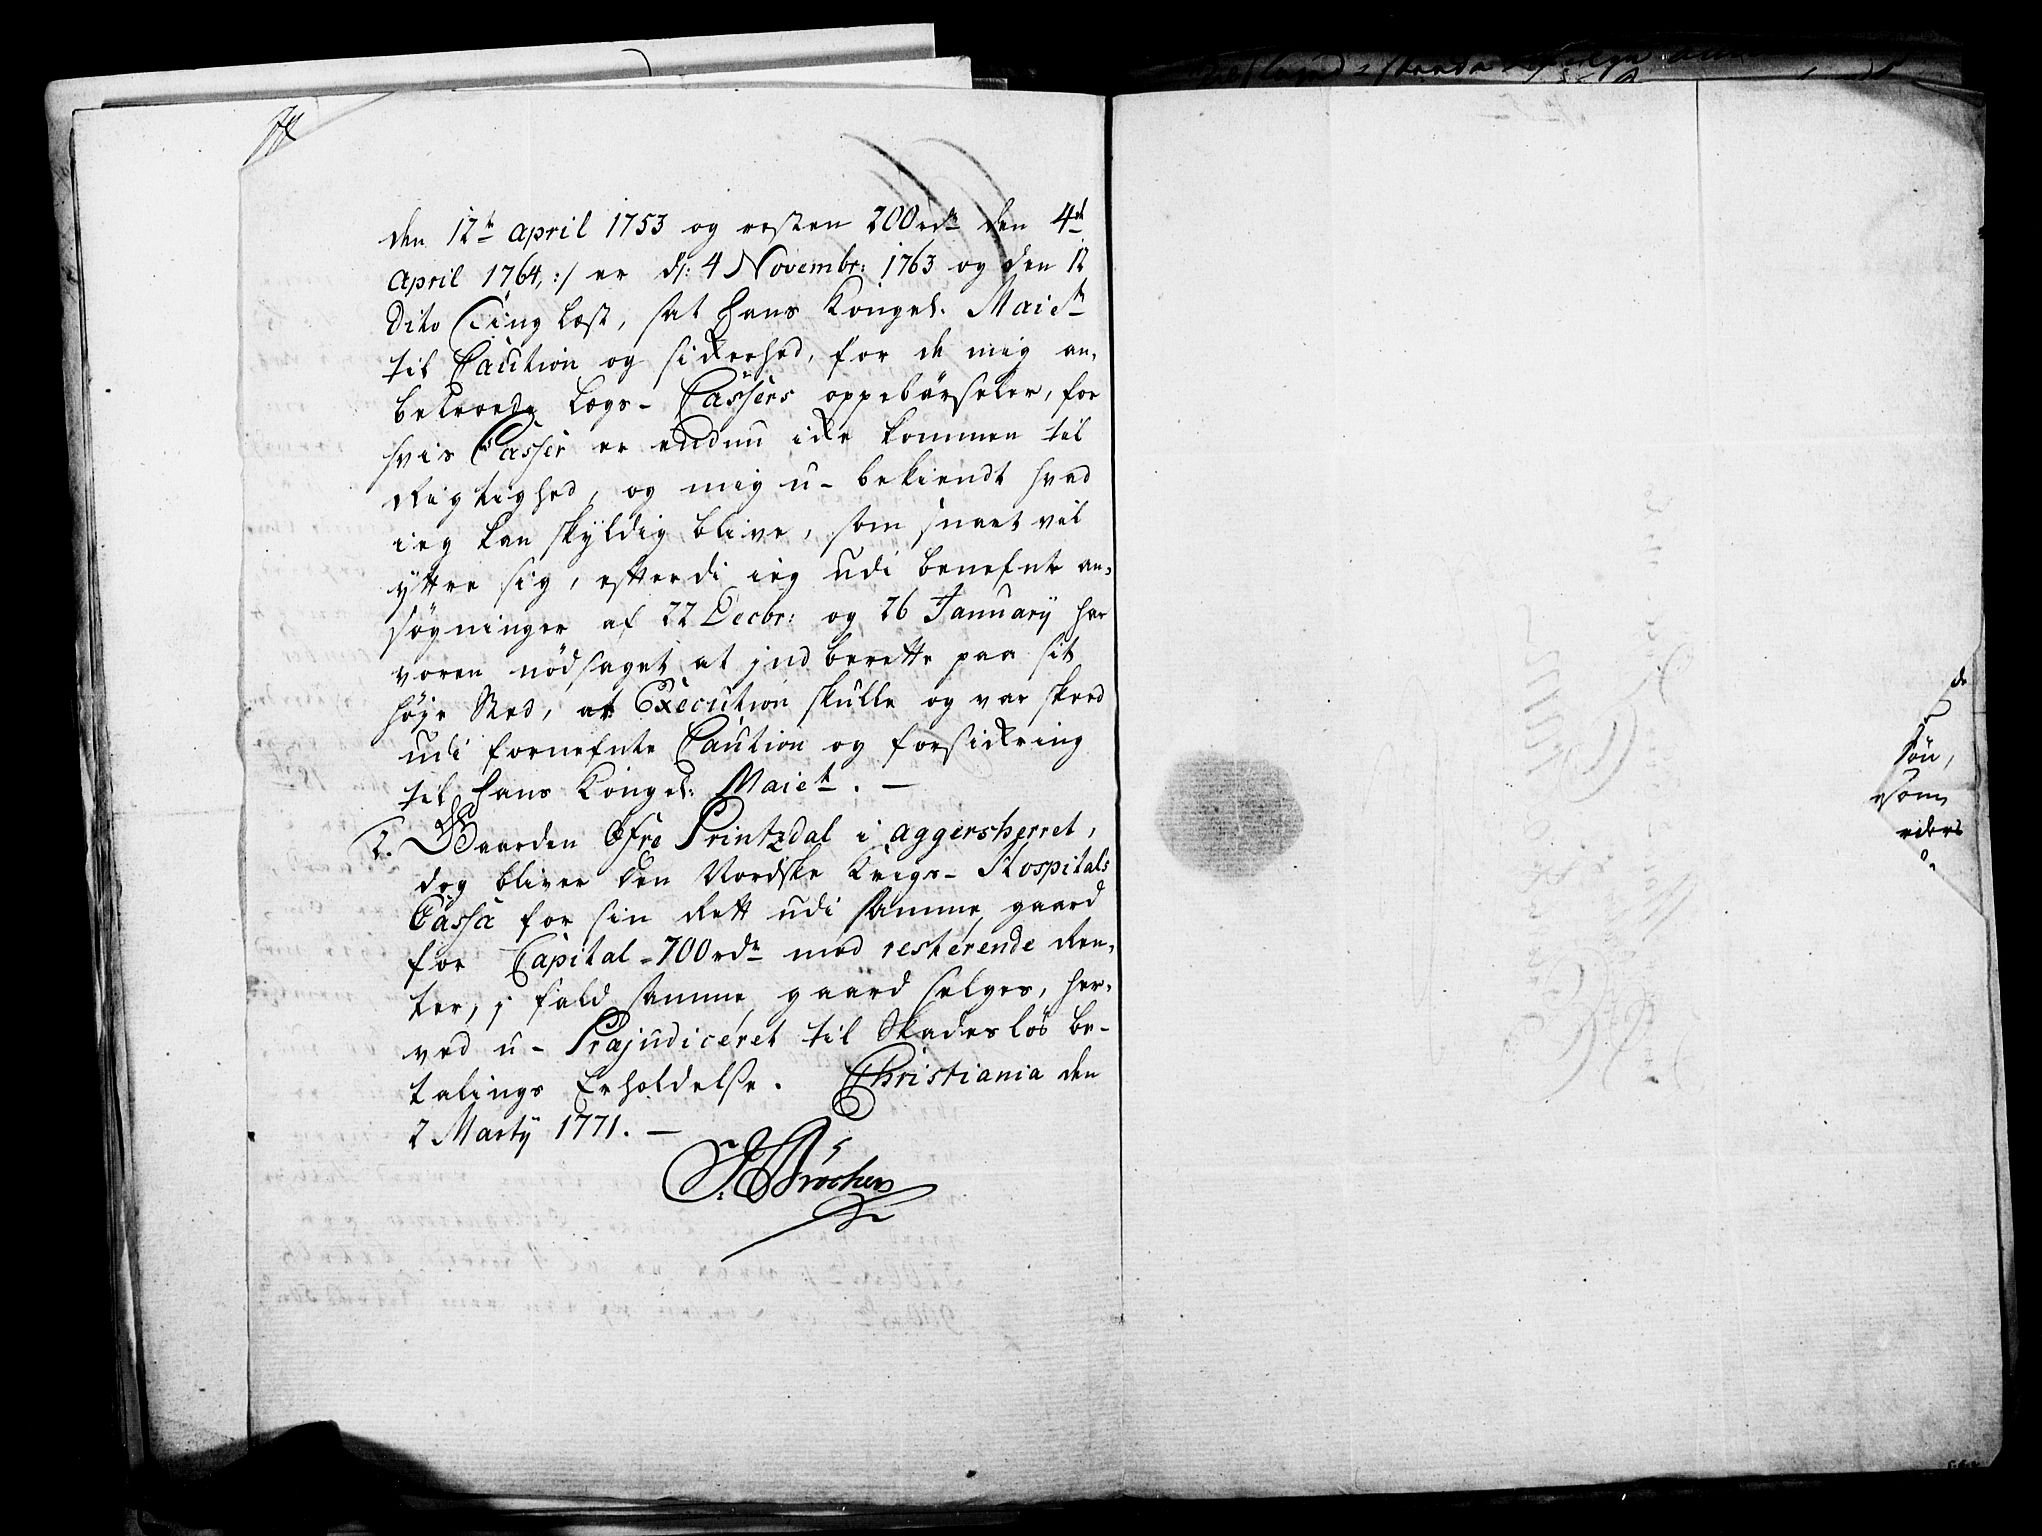 den 12te april 1753 og resten 200 rdr den 4de
april 1764, :/ er d: 4 Novembr: 1763 og den 12
Dito Ting læst, sat hans Kongel. Maiet
til Caution og sikerhed, for de mig an-
betroede Lægs- Cassers oppebørseler, for
hvis Casser er endnu ike kommen til
Rigtighed, og mig u- bekiendt hvad
ieg kan skyldig blive, som snart vil
yttre sig, efterdi ieg udi benefnte an-
søgninger af 22 Decbr: og 26 January har
voren nödsaget at jndberette paa sit
höye Sted, at Execution skulle og var skeed
udi fornefnte Caution og forsikring
til hans Kongel: Maiet. —
2. Gaarden Øfre Printzdal i aggersherret,
dog bliver den Nordske Krigs- Hospitals
Cassa for sin Rett udi samme gaard
for Capital - 700 rdr med resterende Ren-
ter, j fald samme gaard selges, her-
ved u- Præjudiceret til Skadeslös be-
talings Erholdelse. Christiania den
2 Martÿ 1771. —
de
Søn,
som